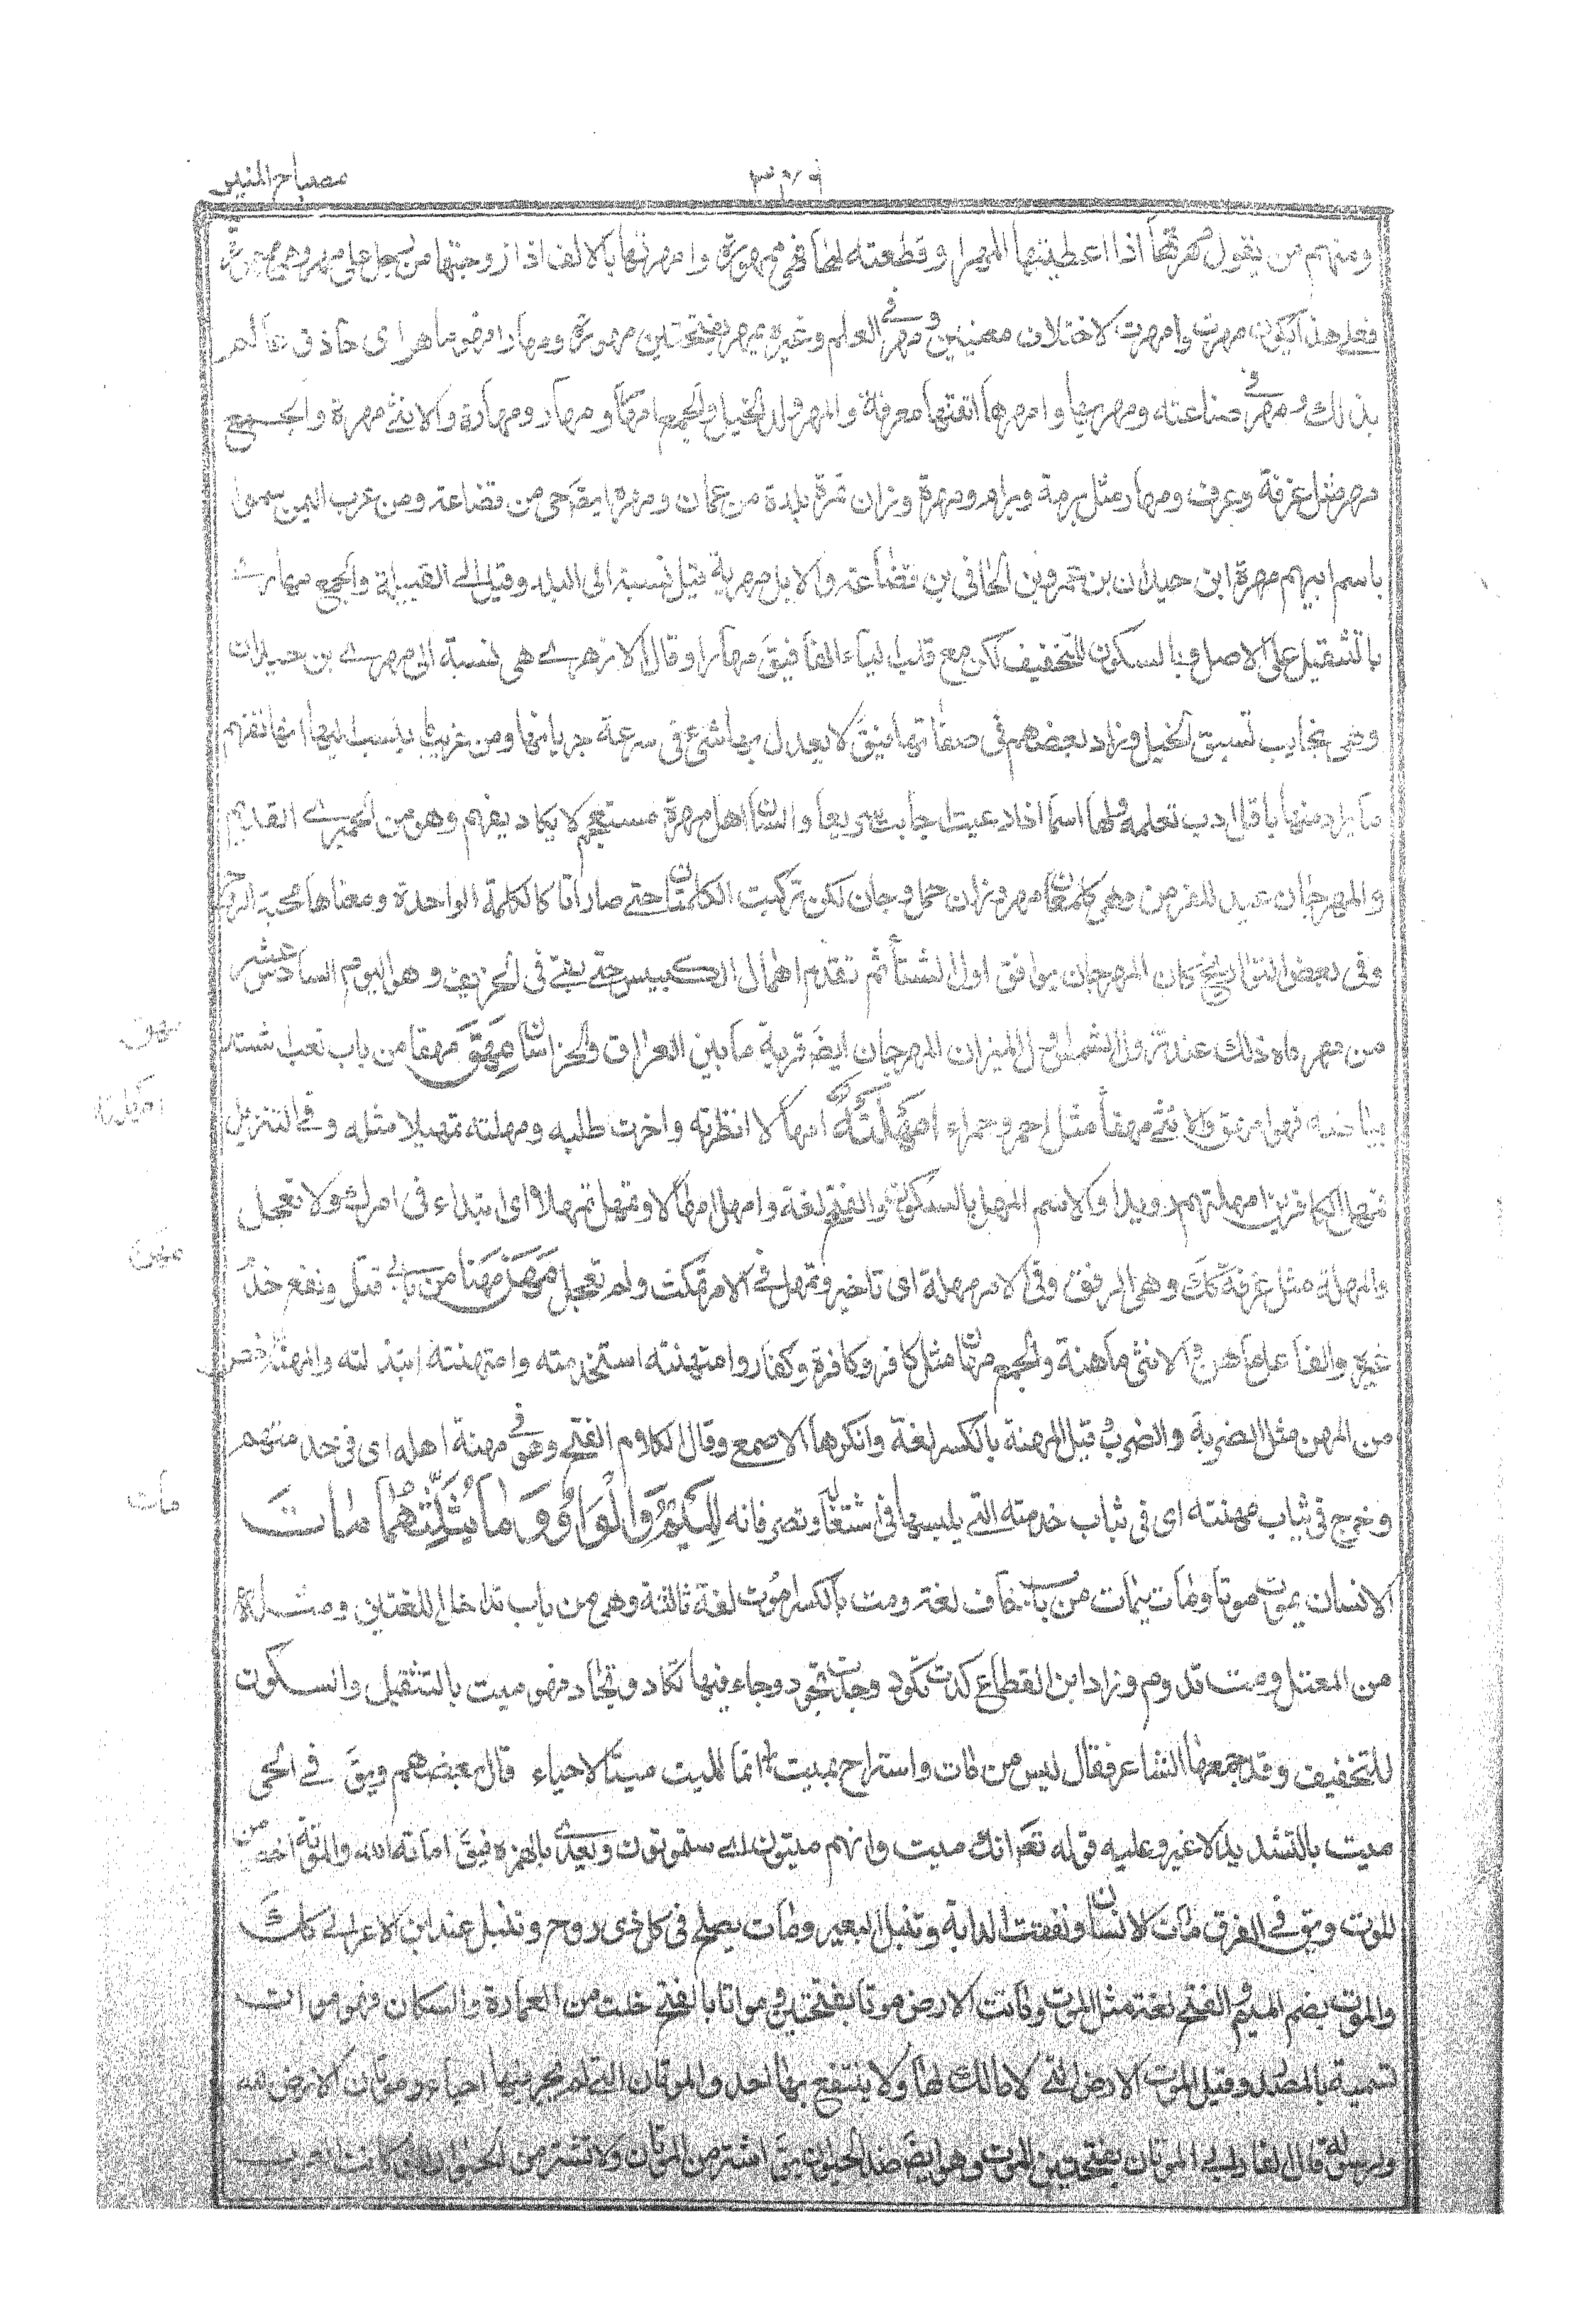 مصباح المنير
٣٧٩
ومنهم من يقول مهرتها اذا اعطيتها المهر او قطعته لها فهى ممهورة وامهرتها بالالف اذا زوجتها من رجل على مهر وهى ممهرة
فعلى هذا يكون مهرت وامهرت لاختلاف معنيين ومهر فى العلم وغيره يمهر بفتحتين مهورا ومهارة فهو ماهر اى حاذق عالم
بذلك ومهر فى صناعته ومهر بها وامهرها اتقنها معرفة والمهر ولد الخيل والجمع امهار ومهار ومهارة والانثى مهرة والجمع
مهر مثل غرفة وغرف ومهار مثل برمة وبرام ومهرة وزان تمرة بلدة من عمان ومهرة ايضا حى من قضاعة ومن عرب اليمن سموا
باسم ابيهم مهرة ابن حيدان بن عمرو بن الحافى بن قضاعة والابل مهرية قيل نسبة الى البلد وقيل الى القبيلة والجمع مهارى
بالتثقيل على الاصل وبالسكون للتخفيف لكن مع قلب الياء الفا فيق مهارا وقال الازهرى هى نسبة الى مهرى بن حيدان
وهى نجايب تسبق الخيل وزاد بعضهم فى صفاتها فيق لا يعدل بها شىء فى سرعة جريانها ومن غريب ما ينسب اليها انها تفهم
ما يراد منها باقل ادب تعلمه ولها اسما اذا دعيت اجابت سريعا ولسان اهل مهرة مستعجم لا يكاد يفهم وهو من الحميرى القديم
والمهرجان عيد للفرس وهى كلمتان مهر وزان حمل وجان لكن تركبت الكلمتان حتى صارتا كالكلمة الواحدة ومعناها محبة الروح
وفى بعض التواريخ كان المهرجان يوافق اول الشتا ثم تقدم اهمال الكبيس حتى بقى فى الخريف وهو اليوم السادس عشر
من مهر ماه ذلك عند نزول الشمس اول الميزان المهرجان ايضا قرية ما بين العراق والخراسان مهق مهقا من باب تعب اشتد
بياضه فهو امهق والانثى مهقا مثل احمر وحمراء امهلته امهالا انظرته واخرت طلبه ومهلته تمهيلا مثله وفى التنزيل
فمهل الكافرين امهلهم رويدا والاسم المهل بالسكون والفتح لغة وامهل امهالا وتمهل تمهلا اى ابتداء فى امرك ولا تعجل
والمهلة مثل غرفة كك وهى الرفق وفى الامر مهملة اى تاخير وتمهل فى الامر تمكث ولم تعجل مهن مهنا من بابى قتل ونفع خدم
غيره والفاعل ماهن والانثى ماهنة والجمع مهان مثل كافر وكافرة وكفار وامتهنته استخدمته وامتهنته ابتذلته والمهنة اخص
من المهن مثل الضربة والضرب قيل المهنة بالكسر لغة وانكرها الاصمعى وقال الكلام الفتح وهو فى مهنة اهله اى فى خدمتهم
وخرج فى ثياب مهنته اى فى ثياب خدمته التى يلبسها فى اشتغاله وتصرفاته الميم والواو وما يثلثهما مات
الانسان يموت موتا ومات يمات من باب خاف لغة ومت بالكسر اموت لغة ثالثة وهى من باب تداخل اللغتين ومثله
من المعتل ومت تدوم وزاد ابن القطاع كدت تكود وجدت تجود وجاء فيها تكاد وتجاد فهو ميت بالتثقيل والسكون
للتخفيف وقد جمعها الشاعر فقال ليس من مات واستراح بميت انما الميت ميت الاحياء قال بعضهم ويق فى الحى
ميت بالتشديد لا غير وعليه قوله تعم انك ميت وانهم ميتون اى ستموتون ويعدى بالهمزة فيق اماته الله والموتة اخص من
الموت ويق فى الفرق مات الانسان ونفقت الدابة وتنبل البعير ومات يصلح فى كل ذى روح وتنبل عند ابن الاعرابى كك
والموت بضم الميم والفتح لغة مثل الموت وماتت الارض موتا بفتحتين ومواتا بالفتح خلت من العمارة والسكان فهو موات
تسمية بالمصدر وقيل الموت الارض التى لا مالك لها ولا ينتفع بها احد والموتان التى لم يجر فيها احياء وموتان الارض لله
ولرسوله قال الفارابى الموتان بفتحتين الموت وهو ايضا ضد الحيوان يق اشتر من الموتان ولا تشتر من الحيوان وكانت العرب
مهق
امهلته
مهن
مات